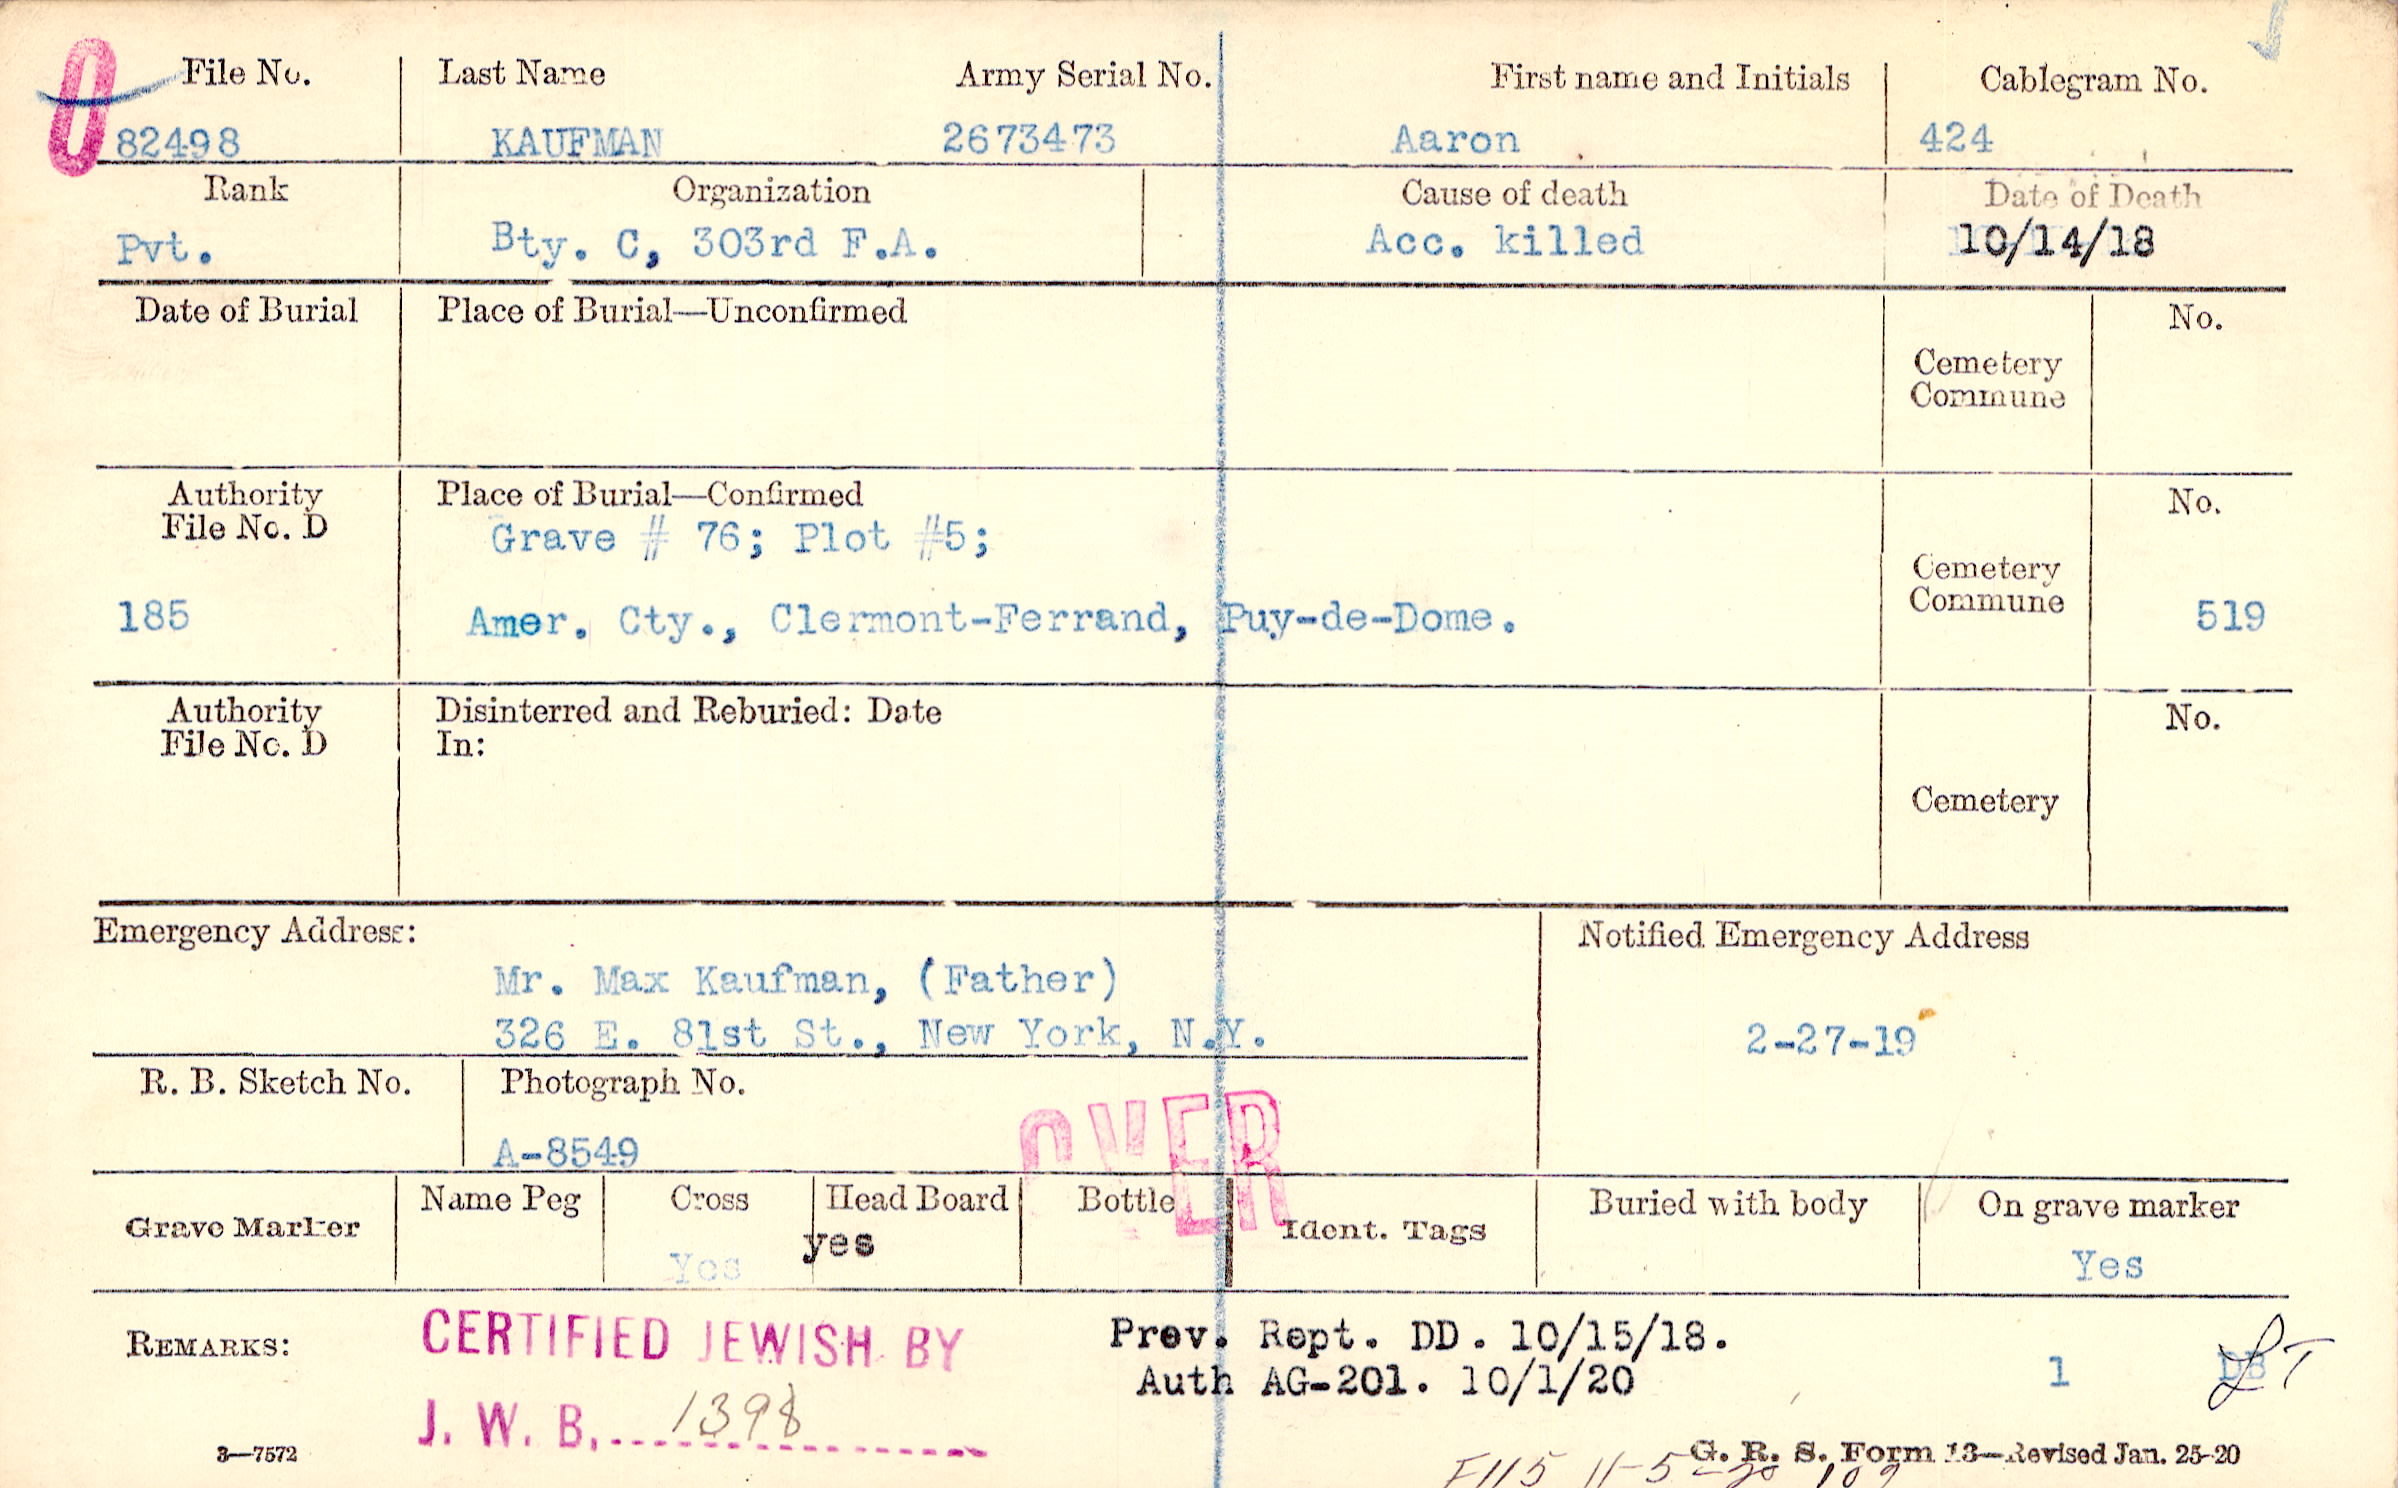 0
File No. Last Name Army Serial No. First name and Initials Cablegram No.
82498 KAUFMAN 2673473 Aaron 424
Rank Organization Cause of death Date of Death
Pvt. Bty. C, 303rd F.A. Acc. killed 10/14/18
Date of Burial Place of Burial—Unconfirmed No.
Cemetery
Commune
Authority Place of Burial—Confirmed No.
File No. D
Grave # 76; Plot #5;
Cemetery
Commune
185 Amer. Cty., Clermont-Ferrand, Puy-de-Dome. 519
Authority Disinterred and Reburied: Date No.
File No. D In:
Cemetery
Emergency Address: Notified Emergency Address
Mr. Max Kaufman, (Father)
326 E. 81st St., New York, N.Y. 2-27-19
R. B. Sketch No. Photograph No.
A-8549
OVER
Grave Marker Name Peg Cross Head Board Bottle Ident. Tags Buried with body On grave marker
Yes yes Yes
REMARKS: CERTIFIED JEWISH BY Prev. Rept. DD. 10/15/18.
Auth AG-201. 10/1/20 1 DB LT
J. W. B. 1398
3—7572 G. R. S. Form 13—Revised Jan. 25-20
11-5-20 109